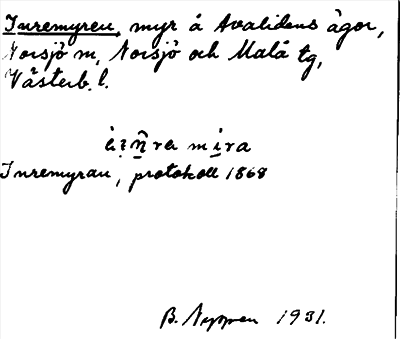 Inremyren, myr å Avalidens ägor,
Norsjö m, Norsjö och Malå tg,
Västerb. l.
mira
Inremyran, protokoll 1868
B. Nyppen 1931.